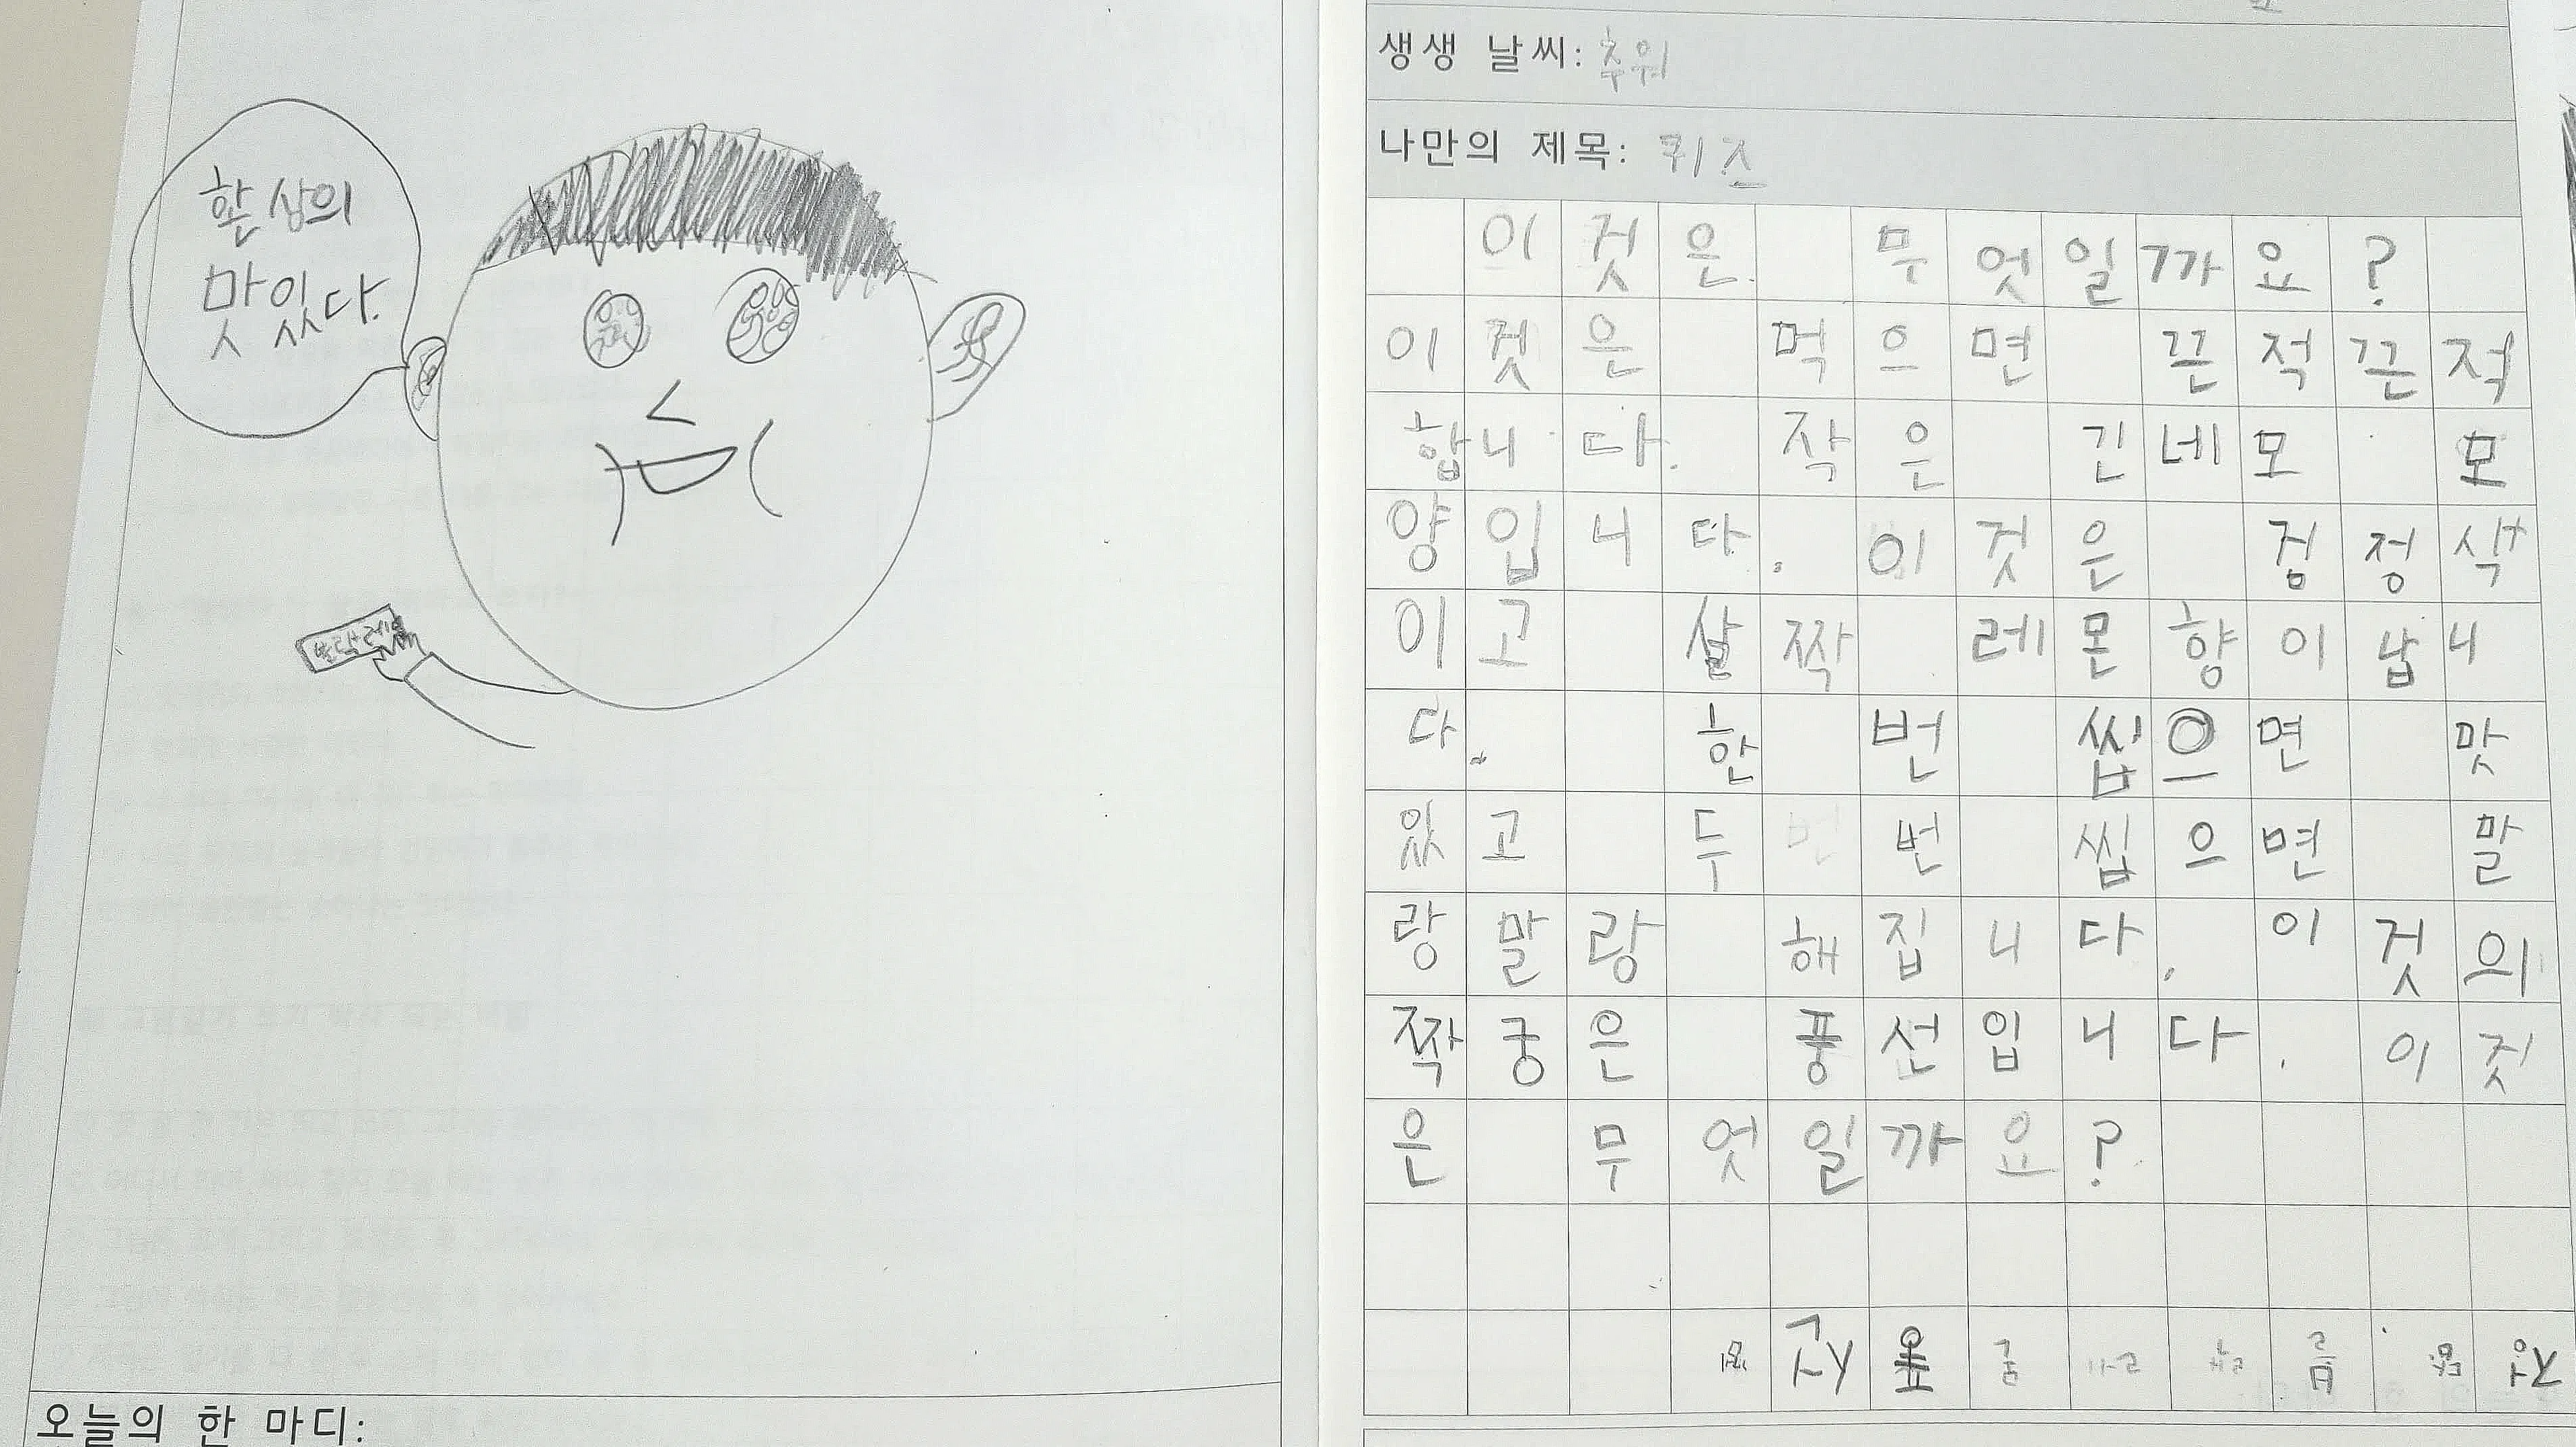 환상의
맛있다.
오늘의 한 마디:
생생 날씨: 추워
나만의 제목: 퀴즈
이것은 무엇일까요?
이것은 먹으면 끈적끈적
합니다. 작은 긴네모 모
양입니다. 이것은 검정색
이고 살짝 레몬향이 납니
다. 한 번 씹으면 맛
있고 두 번 씹으면 말
랑말랑 해집니다. 이것의
짝궁은 풍선입니다. 이것
은 무엇일까요?